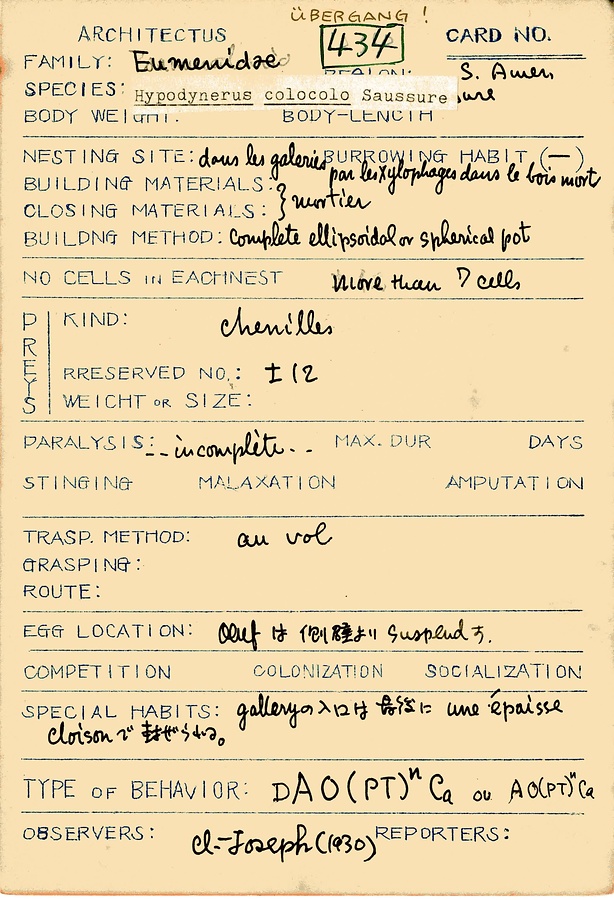 ÜBERGANG !
ARCHITECTUS 434 CARD NO.
FAMILY: Eumenidae REALON: S. Amer
SPECIES: Hypodynerus colocolo Saussure
BODY WEIGHT: BODY-LENGTH
NESTING SITE: dans les galeries BURROWING HABIT (—)
par les xylophages dans le bois mort
BUILDING MATERIALS:
CLOSING MATERIALS: } mortier
BUILDNG METHOD: complete ellipsoidal or spherical pot
NO CELLS IN EACHNEST more than 7 cells
PREYS
KIND: chenilles
RRESERVED NO.: ± 12
WEICHT OR SIZE:
PARALYSIS: -- incomplète -- MAX. DUR DAYS
STINGING MALAXATION AMPUTATION
TRASP. METHOD: au vol
GRASPING:
ROUTE:
EGG LOCATION: Oeuf は 側壁より suspend す.
COMPETITION COLONIZATION SOCIALIZATION
SPECIAL HABITS: galleryの入口は最後に une épaisse
cloisonで封ぜられる。
TYPE OF BEHAVIOR: DAO(PT)ⁿCa ou AO(PT)ⁿCa
OBSERVERS: Cl.-Joseph (1930) REPORTERS: